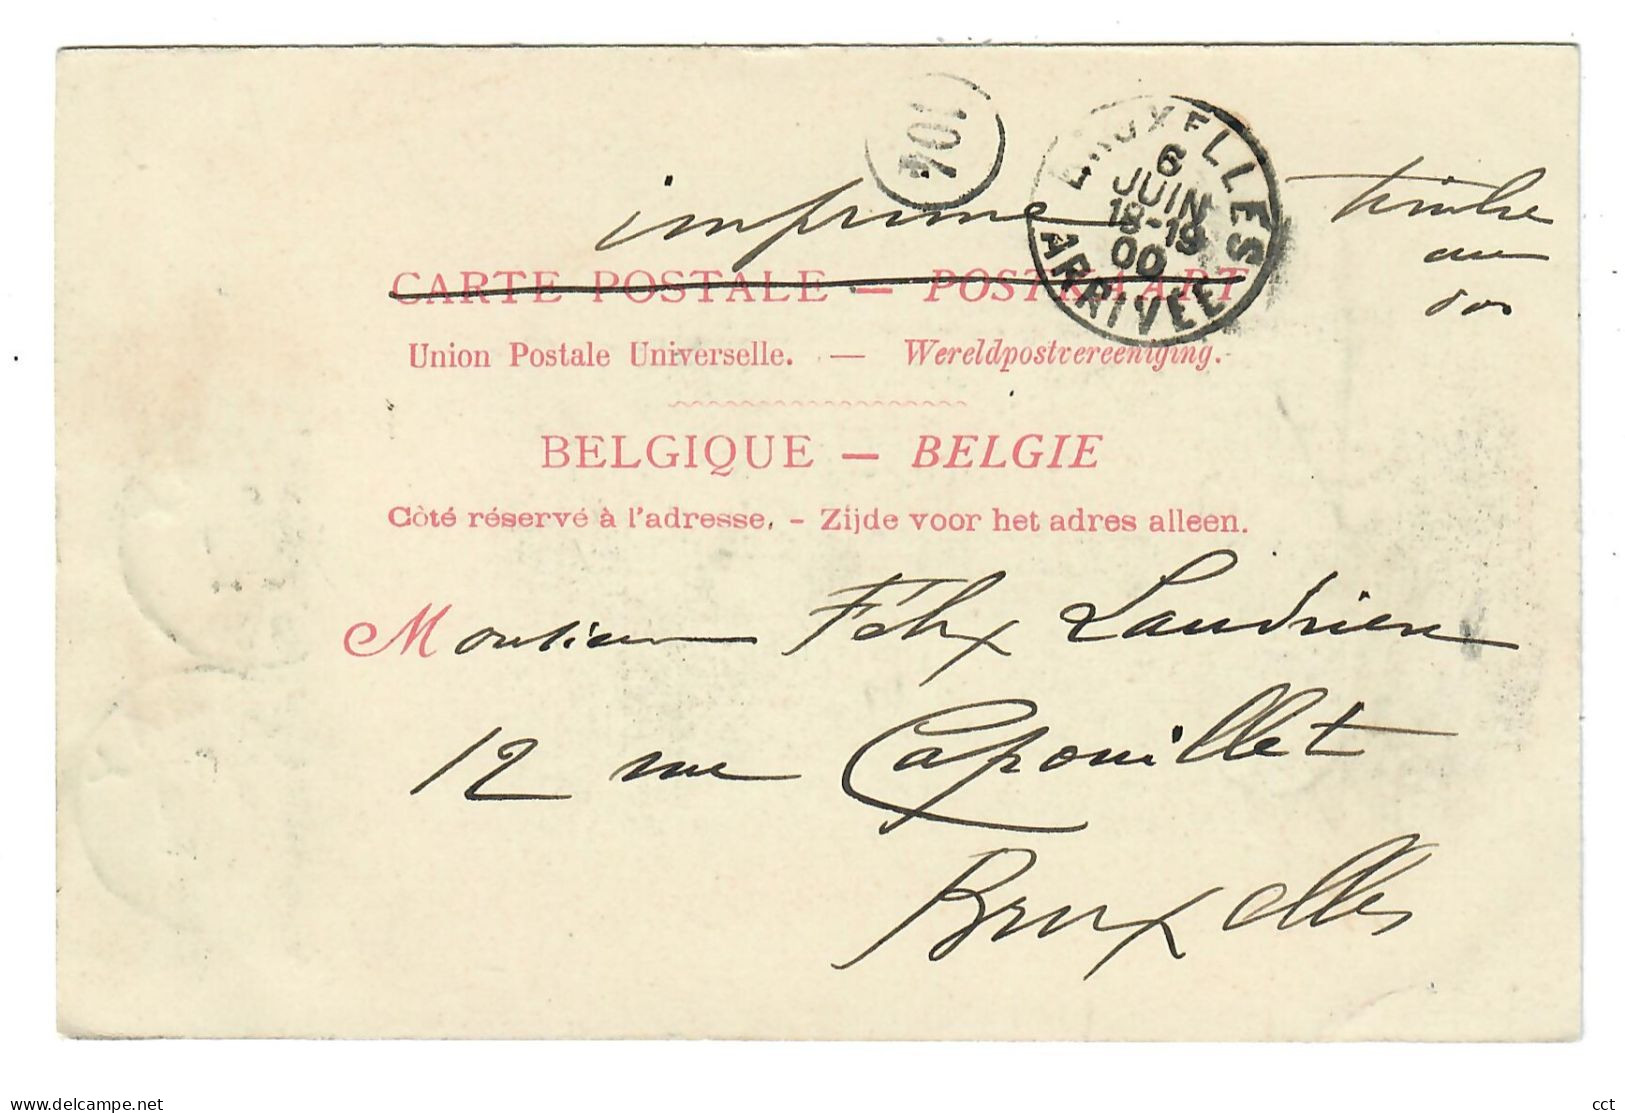 104
BRUXELLES
6
JUIN
18-19
00
ARRIVÉE
imprimé
timbre
au
dos
CARTE POSTALE — POSTKAART
Union Postale Universelle. — Wereldpostvereeniging.
BELGIQUE — BELGIE
Côté réservé à l'adresse. - Zijde voor het adres alleen.
Monsieur Félix Landrien
12 rue Capouillet
Bruxelles
www.delcampe.net
cct